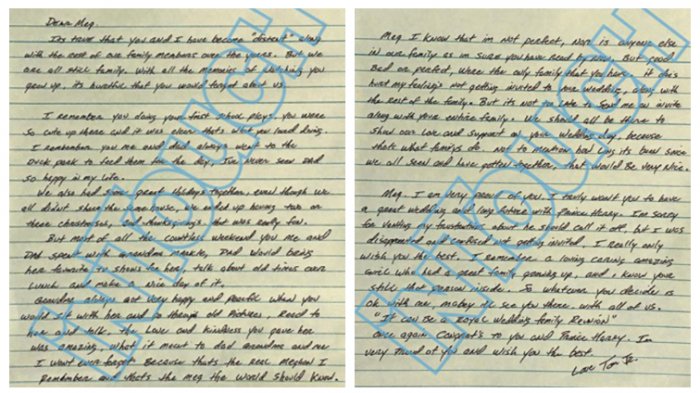 Dear Meg.
Its true that you and I have become "distent" along
with the rest of our family members over the years. But we
are all still family. with all the memories of watching you
grow up. Its hurtful that you would forget about us.
I remember you doing your first school plays. you were
so cute up there and it was clear thats what you loved doing.
I remember you me and dad always went to the
Duck park to feed them for the day, I've never seen Dad
so happy in my life.
We also had some great Holidays together, even though we
all didn't share the same house, we ended up having two or
three christmases, and thanksgivings that was really fun.
But most of all the countless weekend you me and
Dad spent with grandma markle, Dad would bring
her favorite tv shows for her, talk about old times over
Lunch and make a nice day of it.
grandma always got very happy and peaceful when you
would sit with her and go through old Pictures, Read to
her and talk. The Love and kindness you gave her
was amazing. what it meant to dad grandma and me
I wont ever forget Because thats the real Meghan I
Remember and thats the meg the world should know.
Meg I know that im not perfect, Nor is anyone else
in our family as im sure you have Read by Now, But good
Bad or perfect, were the only family that you have. it does
hurt my feelings not getting invited to your wedding, along with
the rest of the family. But its not to late to send me an invite
along with your entire family. We should all be there to
show our Love and support on your wedding day, because
thats what familys do. Not to mention how Long its been since
we all seen and have gotten together, that would Be very Nice.
Meg. I am very proud of you. I truly want you to have
a great wedding and long future with Prince Harry. Im sorry
for venting my frustrations about he should call it off. but I was
disapointed and confused not getting invited. I really only
wish you the best. I remember a loving caring amazing
girl who had a great family growing up, and i know your
still that person inside. So whatever you decide is
ok with me, maby ill see you there, with all of us.
"It can Be a Royal wedding family Reunion"
once again Congrat's to you and Prince Harry. Im
very proud of you and wish you the best.
Love Tom Jr.
InTouch
InTouch